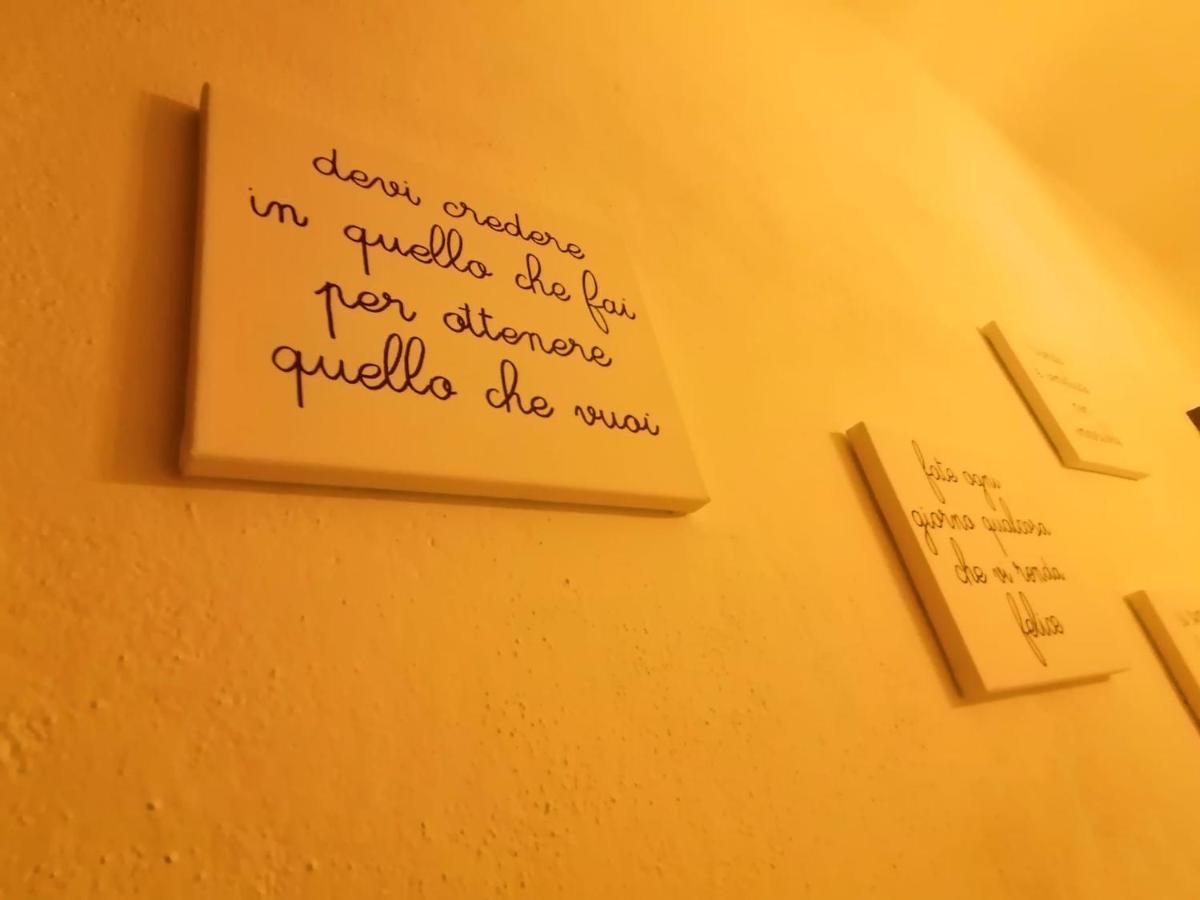 devi credere
in quello che fai
per ottenere
quello che vuoi
fate ogni
giorno qualcosa
che vi renda
felice